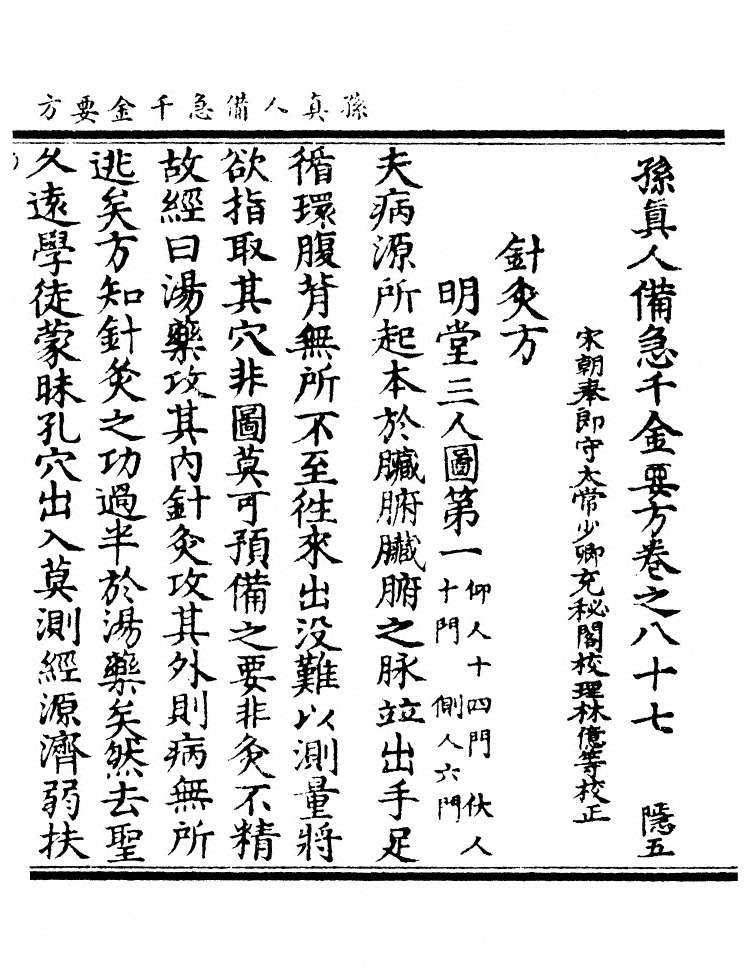 孫真人備急千金要方
孫眞人備急千金要方卷之八十七　隱五
宋朝奉郎守太常少卿充秘閣校理林億等校正
針灸方
明堂三人圖第一　仰人十四門　伏人
十門　側人六門
夫病源所起本於臟腑臟腑之脉竝出手足
循環腹背無所不至徃來出没難以測量將
欲指取其穴非圖莫可預備之要非灸不精
故經曰湯藥攻其内針灸攻其外則病無所
逃矣方知針灸之功過半於湯藥矣然去聖
久遠學徒蒙昧孔穴出入莫測經源濟弱扶